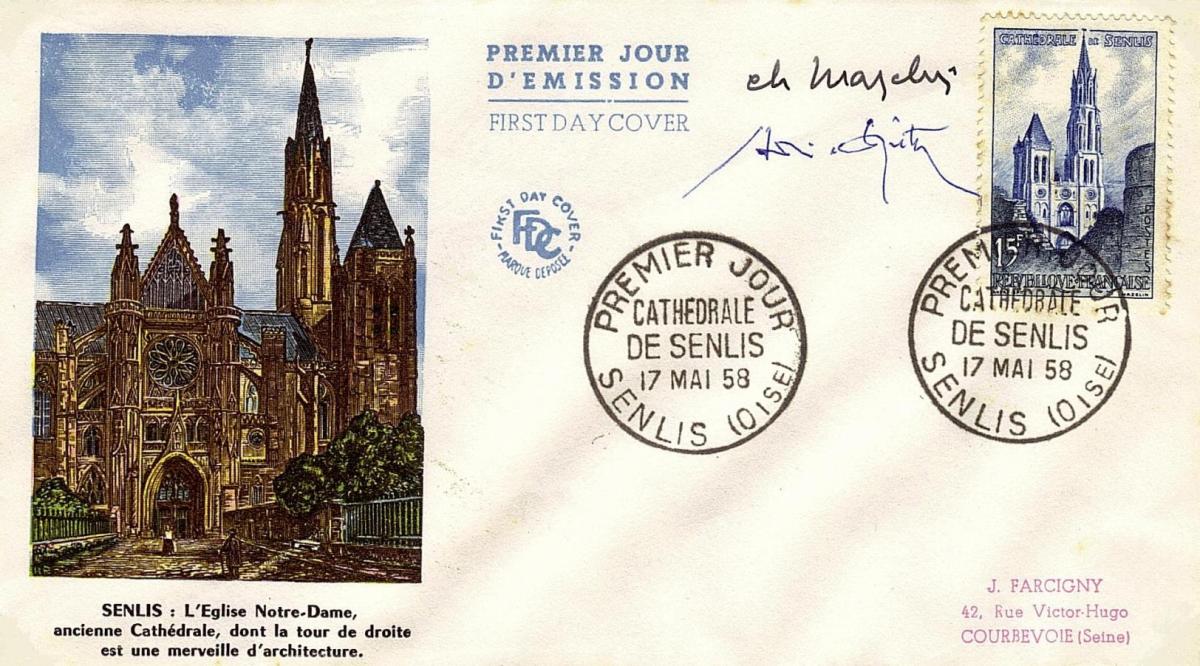 PREMIER JOUR
D'EMISSION
FIRST DAY COVER
ch Mazelin
FIRST DAY COVER
FDC
MARQUE DEPOSEE
CATHÉDRALE DE SENLIS
15F
POSTES
REPUBLIQUE FRANÇAISE
MAZELIN
PREMIER JOUR
CATHEDRALE
DE SENLIS
17 MAI 58
SENLIS (OISE)
PREMIER JOUR
CATHEDRALE
DE SENLIS
17 MAI 58
SENLIS (OISE)
SENLIS : L'Eglise Notre-Dame,
ancienne Cathédrale, dont la tour de droite
est une merveille d'architecture.
J. FARCIGNY
42, Rue Victor-Hugo
COURBEVOIE (Seine)